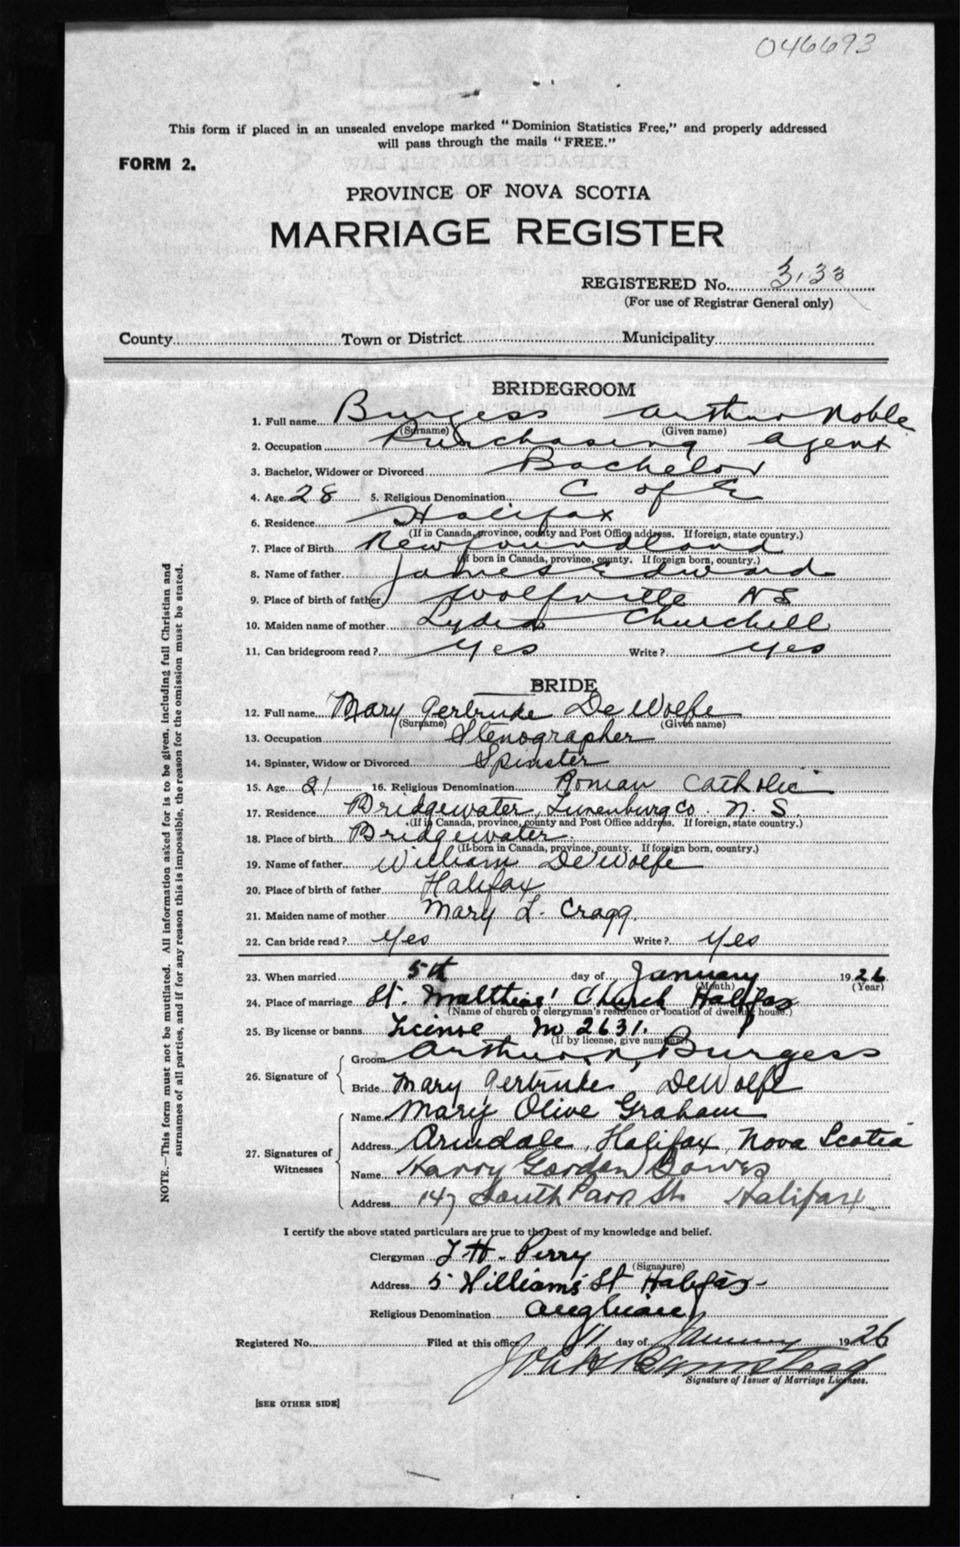 046693
This form if placed in an unsealed envelope marked "Dominion Statistics Free," and properly addressed
will pass through the mails "FREE."
FORM 2.
PROVINCE OF NOVA SCOTIA
MARRIAGE REGISTER
REGISTERED No. 3133
(For use of Registrar General only)
County Town or District Municipality
BRIDEGROOM
1. Full name Burgess Arthur Noble
(Surname) (Given name)
2. Occupation Purchasing Agent
3. Bachelor, Widower or Divorced Bachelor
4. Age 28 5. Religious Denomination C of E
6. Residence Halifax
(If in Canada, province, county and Post Office address. If foreign, state country.)
7. Place of Birth Newfoundland
(If born in Canada, province, county. If foreign born, country.)
8. Name of father James Edward
9. Place of birth of father Wolfville NS
10. Maiden name of mother Lydia Churchill
11. Can bridegroom read? Yes Write? Yes
BRIDE
12. Full name Mary Gertrude DeWolfe
(Surname) (Given name)
13. Occupation Stenographer
14. Spinster, Widow or Divorced Spinster
15. Age 21 16. Religious Denomination Roman Catholic
17. Residence Bridgewater, Lunenburg Co. N.S.
(If in Canada, province, county and Post Office address. If foreign, state country.)
18. Place of birth Bridgewater.
(If born in Canada, province, county. If foreign born, country.)
19. Name of father William DeWolfe
20. Place of birth of father Halifax
21. Maiden name of mother Mary L. Cragg.
22. Can bride read? Yes Write? Yes
23. When married 5th day of January 1926
(Month) (Year)
24. Place of marriage St. Matthias' Church Halifax
(Name of church or clergyman's residence or location of dwelling house.)
25. By license or banns License No 2631.
(If by license, give number)
26. Signature of Groom Arthur N. Burgess
Bride Mary Gertrude DeWolfe
27. Signatures of Witnesses Name Mary Olive Graham
Address Armdale, Halifax, Nova Scotia
Name Harry Gordon Bowes
Address 147 South Park St. Halifax
I certify the above stated particulars are true to the best of my knowledge and belief.
Clergyman T. H. Perry
(Signature)
Address 5 Williams St Halifax
Religious Denomination Anglican
Registered No. Filed at this office 11 day of January 1926
Signature of Issuer of Marriage Licenses.
[SEE OTHER SIDE]
NOTE.—This form must not be mutilated. All information asked for is to be given, including full Christian and
surnames of all parties, and if for any reason this is impossible, the reason for the omission must be stated.